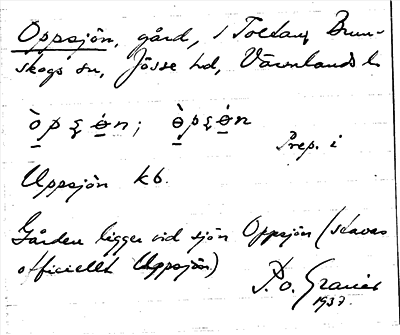 Oppsjön, gård, i Toltan, Brun-
skogs sn, Jösse hd, Värmlands l.
òpʂɵ̀n; ɵ̀pʂɵ̀n
Prep. i
Uppsjön kb.
Gården ligger vid sjön Oppsjön (stavas
officiellt Uppsjön)
P. O. Graner
1937.